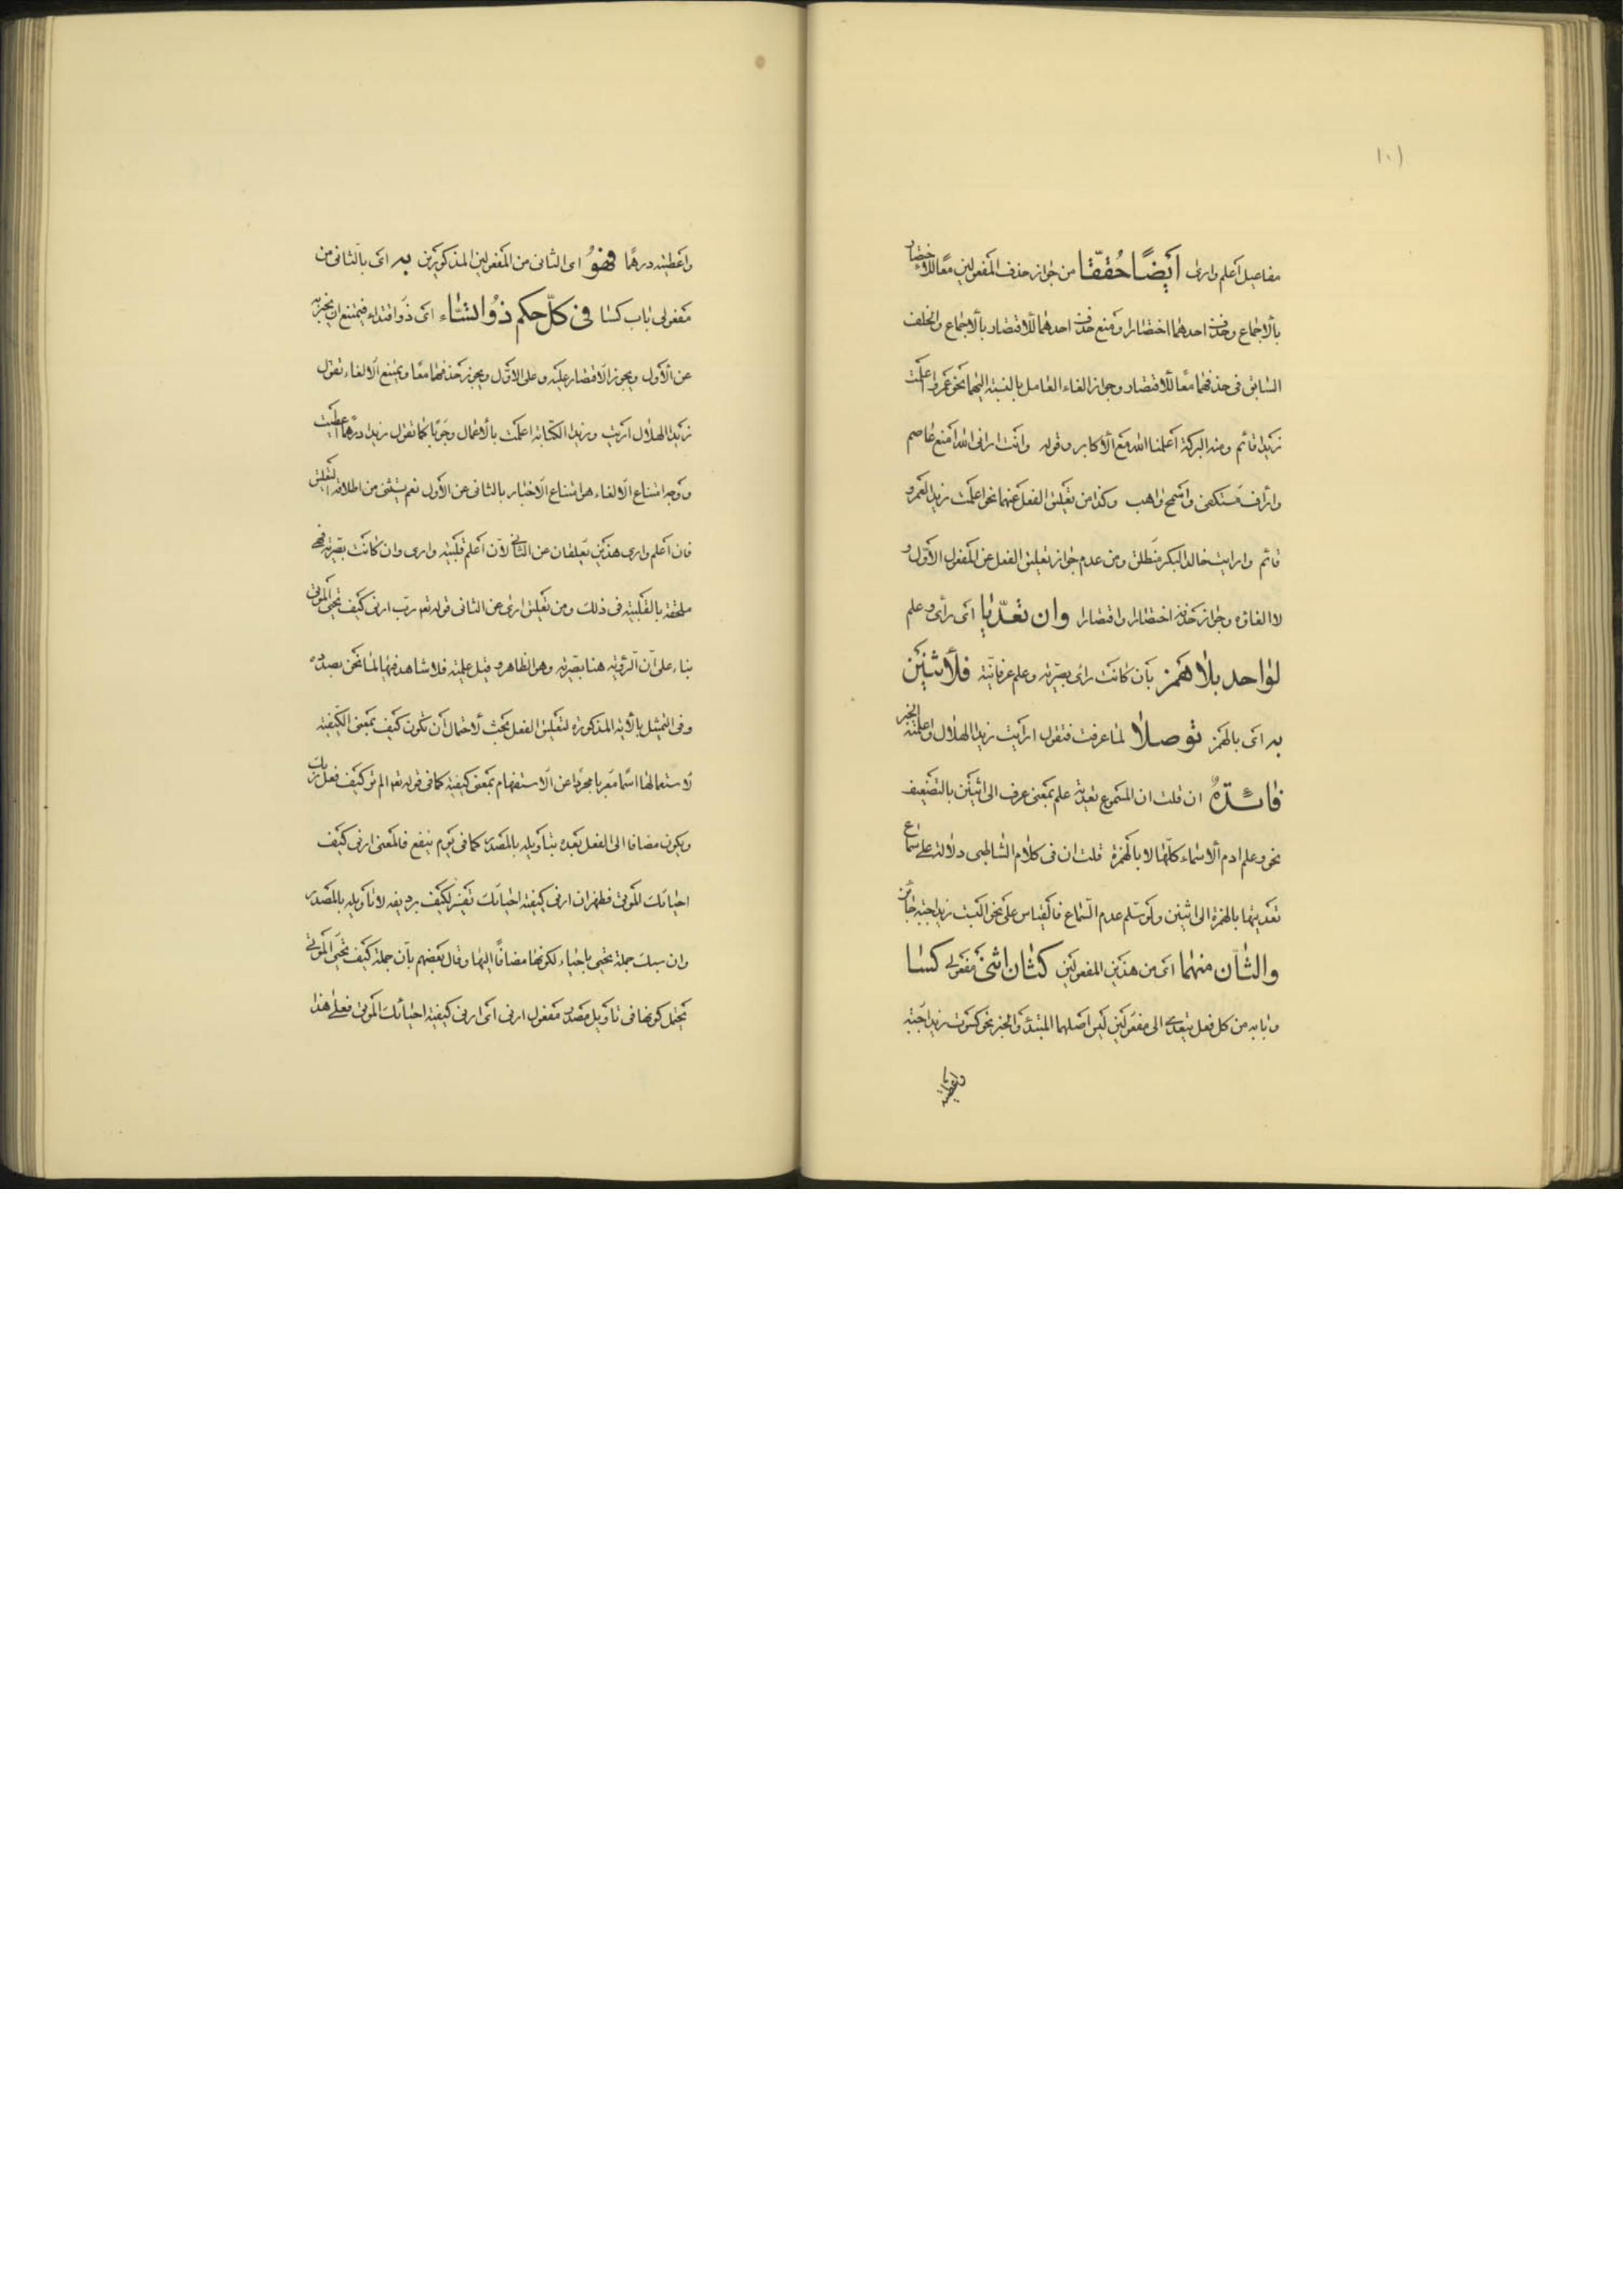 ١٠١
مفاعيل أعلم وارى أيضًا حُقّقا من جواز حذف المفعولين معًا للاختصار
بالاجماع وحذف احدهما اختصارا ومنع حذف احدهما للاقتصار بالاجماع والخلف
السابق فى حذفهما معًا للاقتصار وجواز الغاء العامل بالنسبة اليهما نحو عمرو اعلمت
زيدا قائم ومنه البركة أعلمنا الله مع الاكابر وقوله وانت ارانى الله امنع عاصم
وارأف مستكفى واسمح واهب وكذا من تعليق الفعل عنهما نحو اعلمت زيدا لعمرو
قائم واريت خالدا لبكر منطلق ومن عدم جواز تعليق الفعل عن المفعول الاول و
لا الغاؤه وجواز حذفه اختصارا واقتصارا وان تعدّيا اى رأى وعلم
لواحد بلا همز بأن كانت رأى بصرية وعلم عرفانية فلأثنين
به اى بالهمز توصلا لما عرفت فتقول اريت زيدا الهلال واعلمته الخبر
فائدةٌ ان قلت ان المسموع تعدية علم بمعنى عرف الى اثنين بالتضعيف
نحو وعلم ادم الاسماء كلّها لا بالهمزة قلت ان فى كلام الشاطبى دلالة على سماع
تعديتها بالهمزة الى اثنين ولو سلم عدم السّماع فالقياس على نحو البست زيدا جبة جائز
والثان منهما اى من هذين المفعولين كثان اثنى مفعولى كسا
وبابه من كل فعل يتعدى الى مفعولين ليس اصلهما المبتدأ والخبر نحو كسوت زيدا جبّة
واعطيته
واعطيته درهما فهوُ اى الثانى من المفعولين المذكورين به اى بالثانى من
مفعولى باب كسا فى كلّ حكم ذو ائتساء اى ذو اقتداء فيمتنع ان يخبر به
عن الاول ويجوز الاقتصار عليه وعلى الاوّل ويجوز حذفهما معًا ويمتنع الالغاء تقول
زيدا الهلال اريت وزيدا الكتابة اعلمت بالاعمال وجوبًا كما تقول زيدا درهما اعطيت
ووجه امتناع الالغاء هو امتناع الاخبار بالثانى عن الاول نعم يستثنى من اطلاقه التعليق
فان أعلم وارى هذين يعلقان عن الثانى لان أعلم قلبية وارى وان كانت بصرية فهى
ملحقة بالقلبية فى ذلك ومن تعليق ارى عن الثانى قوله تعه ربّ ارنى كيف تحيى الموتى
بناء على أن الرؤية هنا بصرية وهو الظاهر وقيل علمية فلا شاهد فيها لما نحن بصدده
وفى التمثيل بالاية المذكورة لتعليق الفعل بحث لاحتمال ان تكون كيف بمعنى الكيفية
لاستعمالها اسمًا معربا مجردًا عن الاستفهام بمعنى كيفية كما فى قوله تعه الم تر كيف فعل ربك
ويكون مضافا الى الفعل بعده بتأويله بالمصدر كما فى يوم ينفع فالمعنى ارنى كيف
احيائك للموتى فظهر ان ارنى كيفية احيائك تفسير لكيف برديفه لا تأويله بالمصدر
وان سبك جملة تحيى باحياء لكونها مضافًا اليها وقال بعضهم بأن جملة كيف تحيى الموتى
يحتمل كونها فى تأويل مصدر مفعول ارنى اى ارنى كيفية احيائك الموتى فعلى هذا